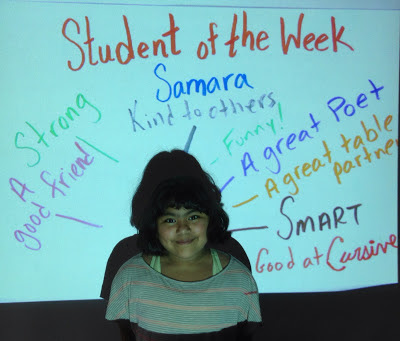 Student of the Week
Samara
Kind to others
Strong
A good friend!
Funny!
A great Poet
A great table
partner
SMART
Good at Cursive